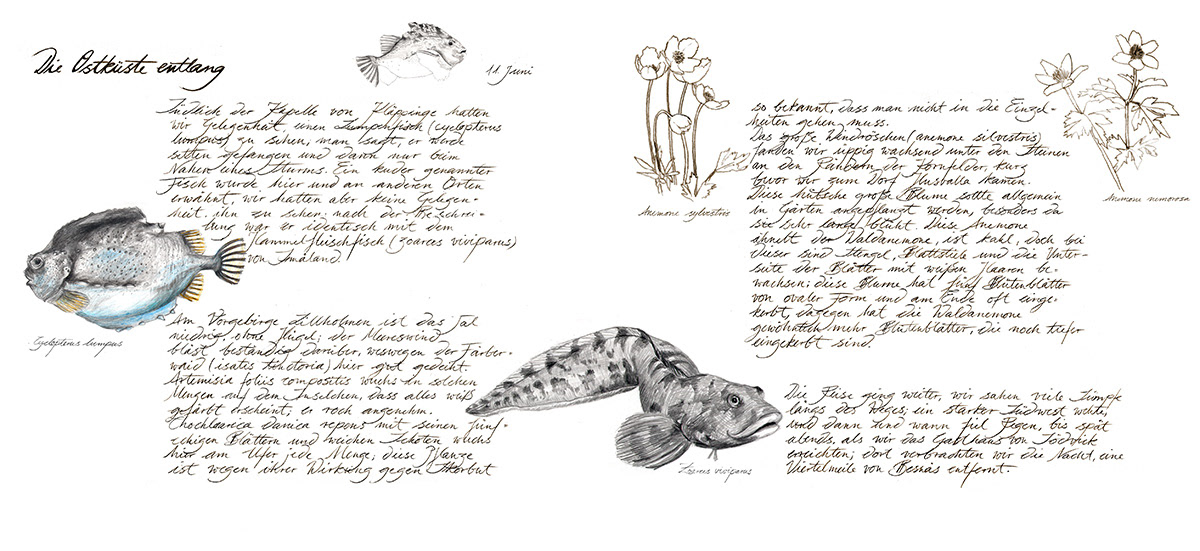 Die Ostküste entlang
11 Juni
Südlich der Kapelle von Kläppinge hatten
wir Gelegenheit, einen Lumpfisch (cyclopterus
lumpus) zu sehen, man sagt, er werde
selten gefangen und dann nur beim
Nahen eines Sturms. Ein kuder genannter
Fisch wurde hier und an anderen Orten
erwähnt, wir hatten aber keine Gelegen-
heit, ihn zu sehen; nach der Beschrei-
bung war er identisch mit dem
Hammelfleischfisch (zoarces viviparus)
von Småland.
Cyclopterus lumpus
Am Vorgebirge Lillholmen ist das Tal
niedrig, ohne Hügel; der Meereswind
bläst beständig darüber, weswegen der Färber-
waid (isatis tinctoria) hier gut gedeiht.
Artemisia foliis compositis wuchs in solchen
Mengen auf dem Inselchen, dass alles weiß
gefärbt erscheint; er roch angenehm.
Cochlearica danica repens mit seinen fünf-
eckigen Blättern und weichen Schoten wuchs
hier am Ufer jede Menge; diese Pflanze
ist wegen ihrer Wirkung gegen Skorbut
Zoarces viviparus
Anemone sylvestris
Anemone nemorosa
so bekannt, dass man nicht in die Einzel-
heiten gehen muss.
Das große Windröschen (anemone silvestris)
fanden wir üppig wachsend unter den Steinen
an den Rändern der Kornfelder, kurz
bevor wir zum Dorf Husvalla kamen.
Diese hübsche große Blume sollte allgemein
in Gärten angepflanzt werden, besonders da
sie sehr lange blüht. Diese Anemone
ähnelt der Waldanemone, ist kahl, doch bei
dieser sind Stengel, Blattstiele und die Unter-
seite der Blätter mit weißen Haaren be-
wachsen; diese Blume hat fünf Blütenblätter
von ovaler Form und am Ende oft einge-
kerbt, dagegen hat die Waldanemone
gewöhnlich mehr Blütenblätter, die noch tiefer
eingekerbt sind.
Die Reise ging weiter, wir sahen viele Sümpfe
längs des Weges; ein starker Südwest wehte,
und dann und wann fiel Regen, bis spät
abends, als wir das Gasthaus von Södvik
erreichten; dort verbrachten wir die Nacht, eine
Viertelmeile von entfernt.